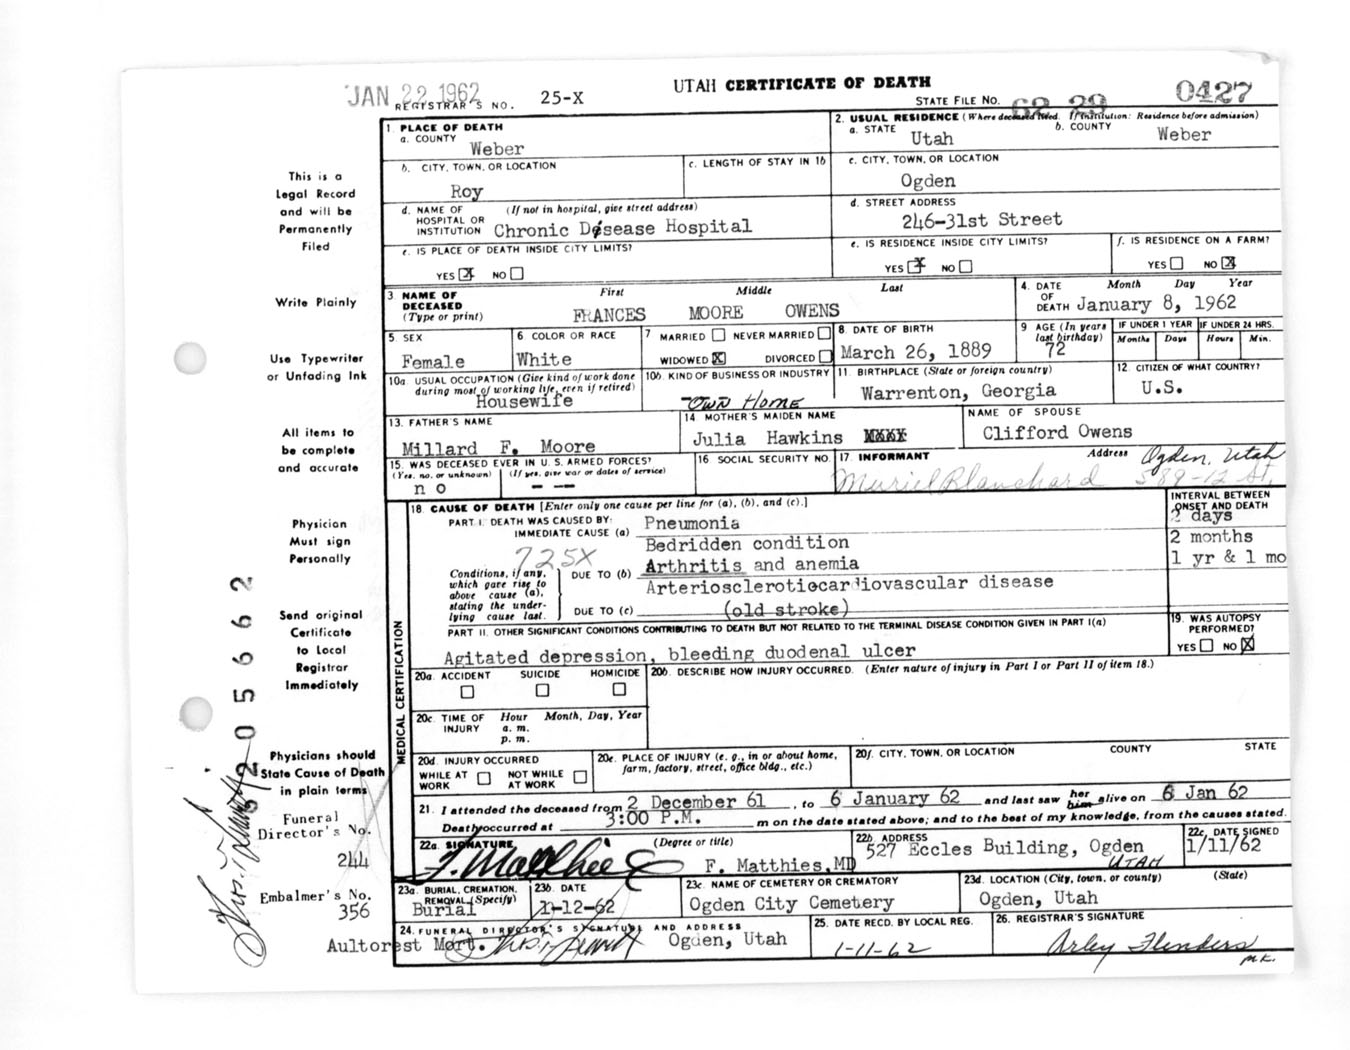 JAN 22 1962
REGISTRAR'S NO. 25-X
UTAH CERTIFICATE OF DEATH
STATE FILE NO. 62 29 0427
1. PLACE OF DEATH
a. COUNTY
Weber
2. USUAL RESIDENCE (Where deceased lived. If institution: Residence before admission)
a. STATE Utah b. COUNTY Weber
b. CITY, TOWN, OR LOCATION
Roy
c. LENGTH OF STAY IN 1b
c. CITY, TOWN, OR LOCATION
Ogden
d. NAME OF HOSPITAL OR INSTITUTION (If not in hospital, give street address)
Chronic Disease Hospital
d. STREET ADDRESS
246-31st Street
e. IS PLACE OF DEATH INSIDE CITY LIMITS?
YES X NO
e. IS RESIDENCE INSIDE CITY LIMITS?
YES X NO
f. IS RESIDENCE ON A FARM?
YES NO X
3 NAME OF DECEASED (Type or print)
First Middle Last
FRANCES MOORE OWENS
4. DATE OF DEATH Month Day Year
January 8, 1962
5. SEX
Female
6. COLOR OR RACE
White
7 MARRIED NEVER MARRIED
WIDOWED X DIVORCED
8. DATE OF BIRTH
March 26, 1889
9 AGE (In years last birthday)
72
IF UNDER 1 YEAR IF UNDER 24 HRS.
Months Days Hours Min.
10a. USUAL OCCUPATION (Give kind of work done during most of working life, even if retired)
Housewife
10b. KIND OF BUSINESS OR INDUSTRY
Own Home
11. BIRTHPLACE (State or foreign country)
Warrenton, Georgia
12. CITIZEN OF WHAT COUNTRY?
U.S.
13. FATHER'S NAME
Millard F. Moore
14 MOTHER'S MAIDEN NAME
Julia Hawkins
NAME OF SPOUSE
Clifford Owens
15. WAS DECEASED EVER IN U.S. ARMED FORCES?
(Yes, no, or unknown) (If yes, give war or dates of service)
no -- --
16 SOCIAL SECURITY NO.
17. INFORMANT Address
Muriel Blanchard Ogden, Utah
589-12 St.
MEDICAL CERTIFICATION
18. CAUSE OF DEATH [Enter only one cause per line for (a), (b), and (c).]
INTERVAL BETWEEN ONSET AND DEATH
PART I. DEATH WAS CAUSED BY:
IMMEDIATE CAUSE (a) Pneumonia 2 days
725X
Bedridden condition 2 months
Conditions, if any, which gave rise to above cause (a), stating the underlying cause last.
DUE TO (b) Arthritis and anemia 1 yr & 1 mo
Arterioscleroticcardiovascular disease
DUE TO (c) (old stroke)
PART II. OTHER SIGNIFICANT CONDITIONS CONTRIBUTING TO DEATH BUT NOT RELATED TO THE TERMINAL DISEASE CONDITION GIVEN IN PART I(a)
Agitated depression, bleeding duodenal ulcer
19. WAS AUTOPSY PERFORMED?
YES NO X
20a. ACCIDENT SUICIDE HOMICIDE
20b. DESCRIBE HOW INJURY OCCURRED. (Enter nature of injury in Part I or Part II of item 18.)
20c. TIME OF INJURY Hour Month, Day, Year
a. m.
p. m.
20d. INJURY OCCURRED
WHILE AT WORK NOT WHILE AT WORK
20e. PLACE OF INJURY (e. g., in or about home, farm, factory, street, office bldg., etc.)
20f. CITY, TOWN, OR LOCATION COUNTY STATE
21. I attended the deceased from 2 December 61, to 6 January 62 and last saw her him alive on 6 Jan 62
Death occurred at 3:00 P.M. m on the date stated above; and to the best of my knowledge, from the causes stated.
22a. SIGNATURE (Degree or title)
F. Matthies F. Matthies, MD
22b. ADDRESS
527 Eccles Building, Ogden
Utah
22c. DATE SIGNED
1/11/62
23a. BURIAL, CREMATION, REMOVAL (Specify)
Burial
23b. DATE
1-12-62
23c. NAME OF CEMETERY OR CREMATORY
Ogden City Cemetery
23d. LOCATION (City, town, or county) (State)
Ogden, Utah
24. FUNERAL DIRECTOR'S SIGNATURE AND ADDRESS
Aultorest Mort. Ogden, Utah
25. DATE RECD. BY LOCAL REG.
1-11-62
26. REGISTRAR'S SIGNATURE
Arley Flinders
M.K.
This is a
Legal Record
and will be
Permanently
Filed
Write Plainly
Use Typewriter
or Unfading Ink
All items to
be complete
and accurate
Physician
Must sign
Personally
Send original
Certificate
to Local
Registrar
Immediately
Physicians should
State Cause of Death
in plain terms
Funeral
Director's No.
244
Embalmer's No.
356
62 05662